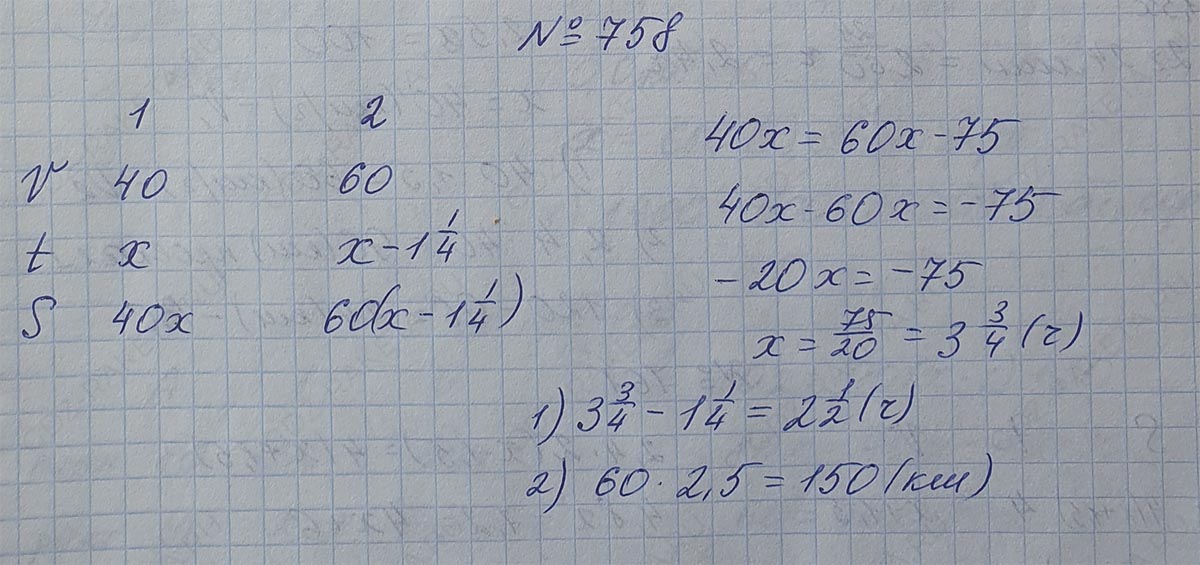 № 758
1 2
V 40 60
t x x - 1 1/4
S 40x 60(x - 1 1/4)
40x = 60x - 75
40x - 60x = -75
-20x = -75
x = 75/20 = 3 3/4 (ч)
1) 3 3/4 - 1 1/4 = 2 1/2 (ч)
2) 60 · 2,5 = 150 (км)